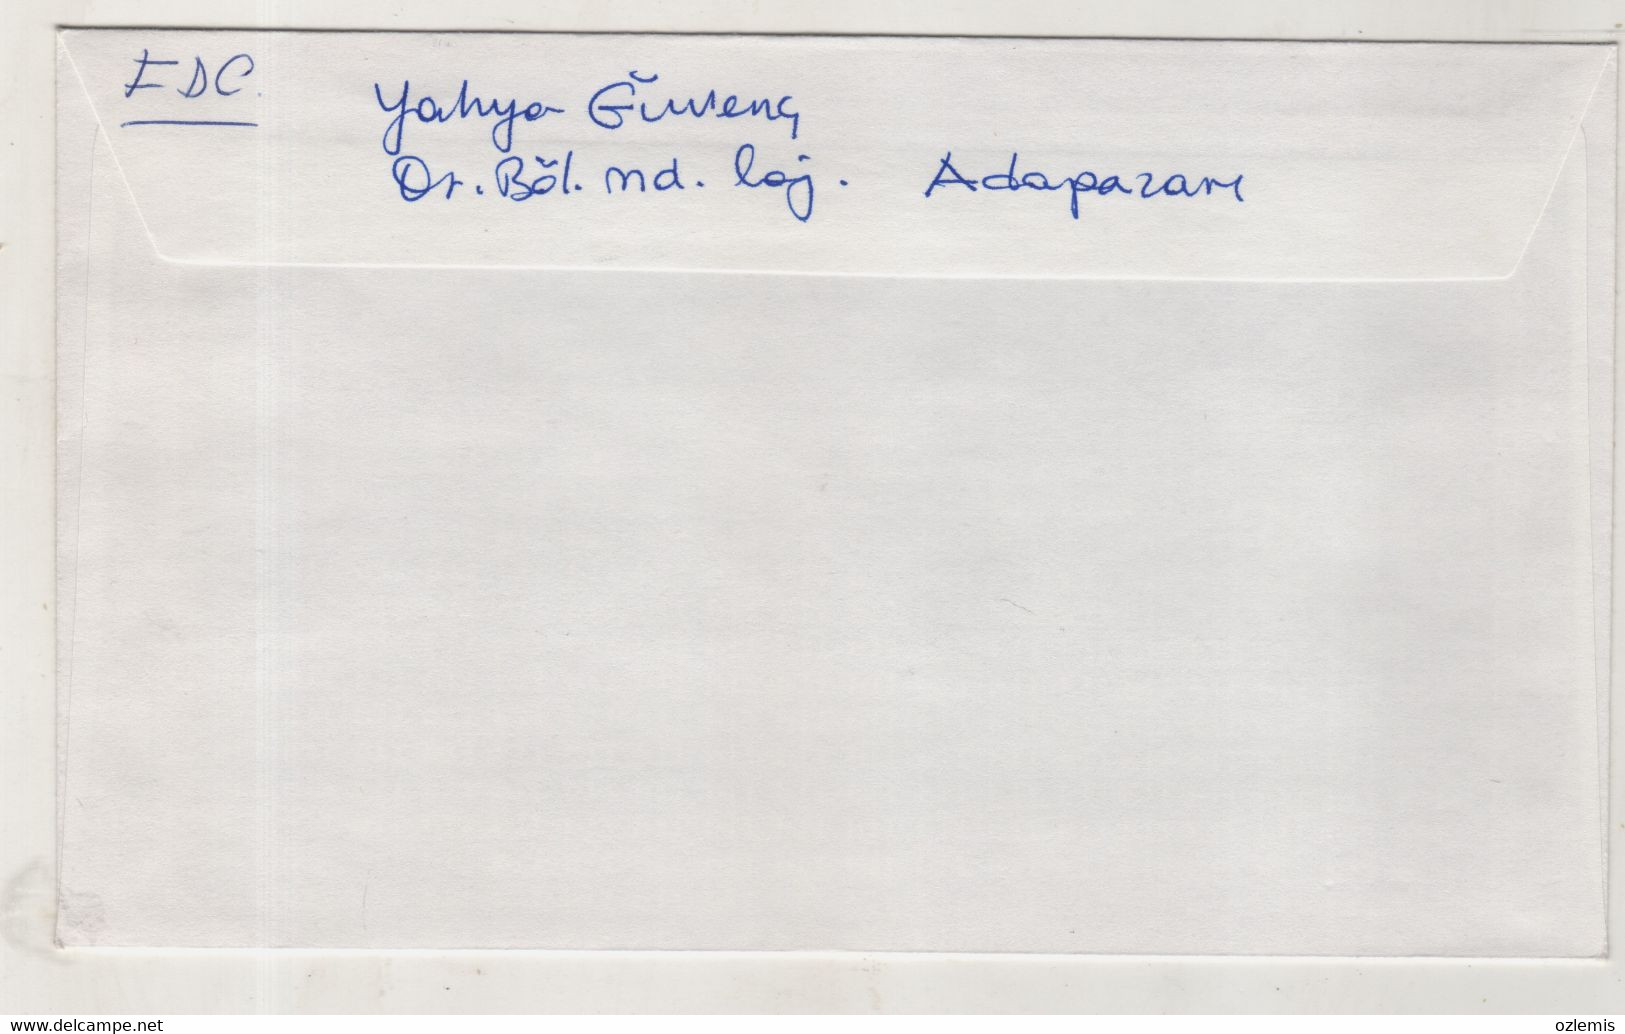 EDC.
Yahya Güvenç
Or. Böl. Md. Loj. Adapazarı
www.delcampe.net
ozlemis